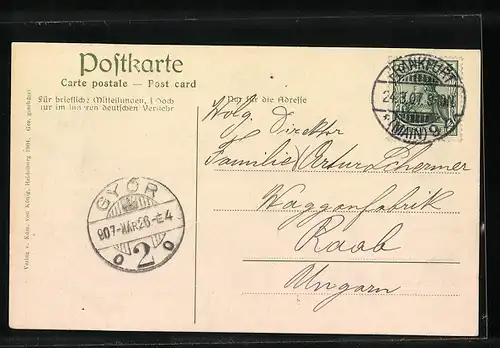 Postkarte
Carte postale — Post card
Für briefliche Mitteilungen, jedoch
nur im inneren deutschen Verkehr
Nur für die Adresse
FRANKFURT
24.3.07. 9-10N
*(MAIN) 9
Direktor
Familie Artur Schermer
Waggonfabrik
Raab
Ungarn
GYŐR
907-MÁR26-É4
2
Verlag v. Edm. von König, Heidelberg 1904. Ges. geschützt